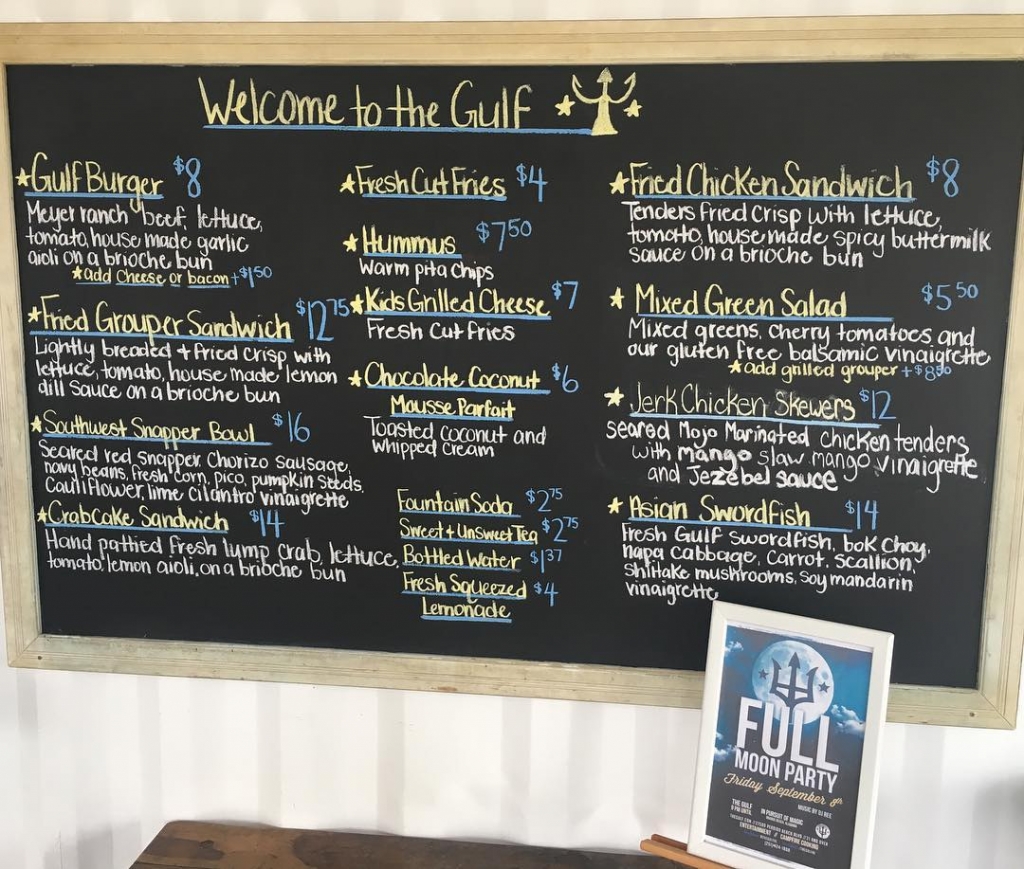 Welcome to the Gulf
Gulf Burger $8
Meyer ranch beef, lettuce,
tomato, house made garlic
aioli on a brioche bun
add cheese or bacon +$1.50
Fried Grouper Sandwich $12.75
Lightly breaded + fried crisp with
lettuce, tomato, house made lemon
dill sauce on a brioche bun
Southwest Snapper Bowl $16
Seared red snapper, Chorizo sausage,
navy beans, fresh corn, pico, pumpkin seeds,
Cauliflower, lime cilantro vinaigrette
Crabcake Sandwich $14
Hand pattied fresh lump crab, lettuce,
tomato, lemon aioli, on a brioche bun
Fresh Cut Fries $4
Hummus $7.50
Warm pita chips
Kids Grilled Cheese $7
Fresh Cut Fries
Chocolate Coconut $6
Mousse Parfait
Toasted coconut and
whipped cream
Fountain Soda $2.75
Sweet + Unsweet Tea $2.75
Bottled Water $1.37
Fresh Squeezed $4
Lemonade
Fried Chicken Sandwich $8
Tenders fried crisp with lettuce,
tomato, house made spicy buttermilk
sauce on a brioche bun
Mixed Green Salad $5.50
Mixed greens, cherry tomatoes, and
our gluten free balsamic vinaigrette
add grilled grouper +$8.50
Jerk Chicken Skewers $12
seared Mojo Marinated chicken tenders
with mango slaw, mango vinaigrette
and Jezebel sauce
Asian Swordfish $14
Fresh Gulf swordfish, bok choy,
napa cabbage, carrot, scallion,
shiitake mushrooms, soy mandarin
vinaigrette
FULL
MOON PARTY
Friday September 8th
THE GULF
IN PURSUIT OF MAGIC
MUSIC BY DJ REE
ENTERTAINMENT // CAMPFIRE COOKING